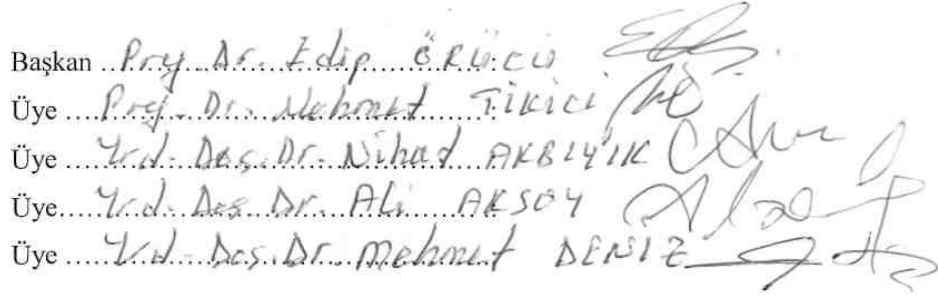 Başkan Prof. Dr. Edip ÖRÜCÜ
Üye Prof. Dr. Mehmet TİKİCİ
Üye Yrd. Doç. Dr. Nihad AKBIYIK
Üye Yrd. Doç. Dr. Ali AKSOY
Üye Yrd. Doç. Dr. Mehmet DENİZ